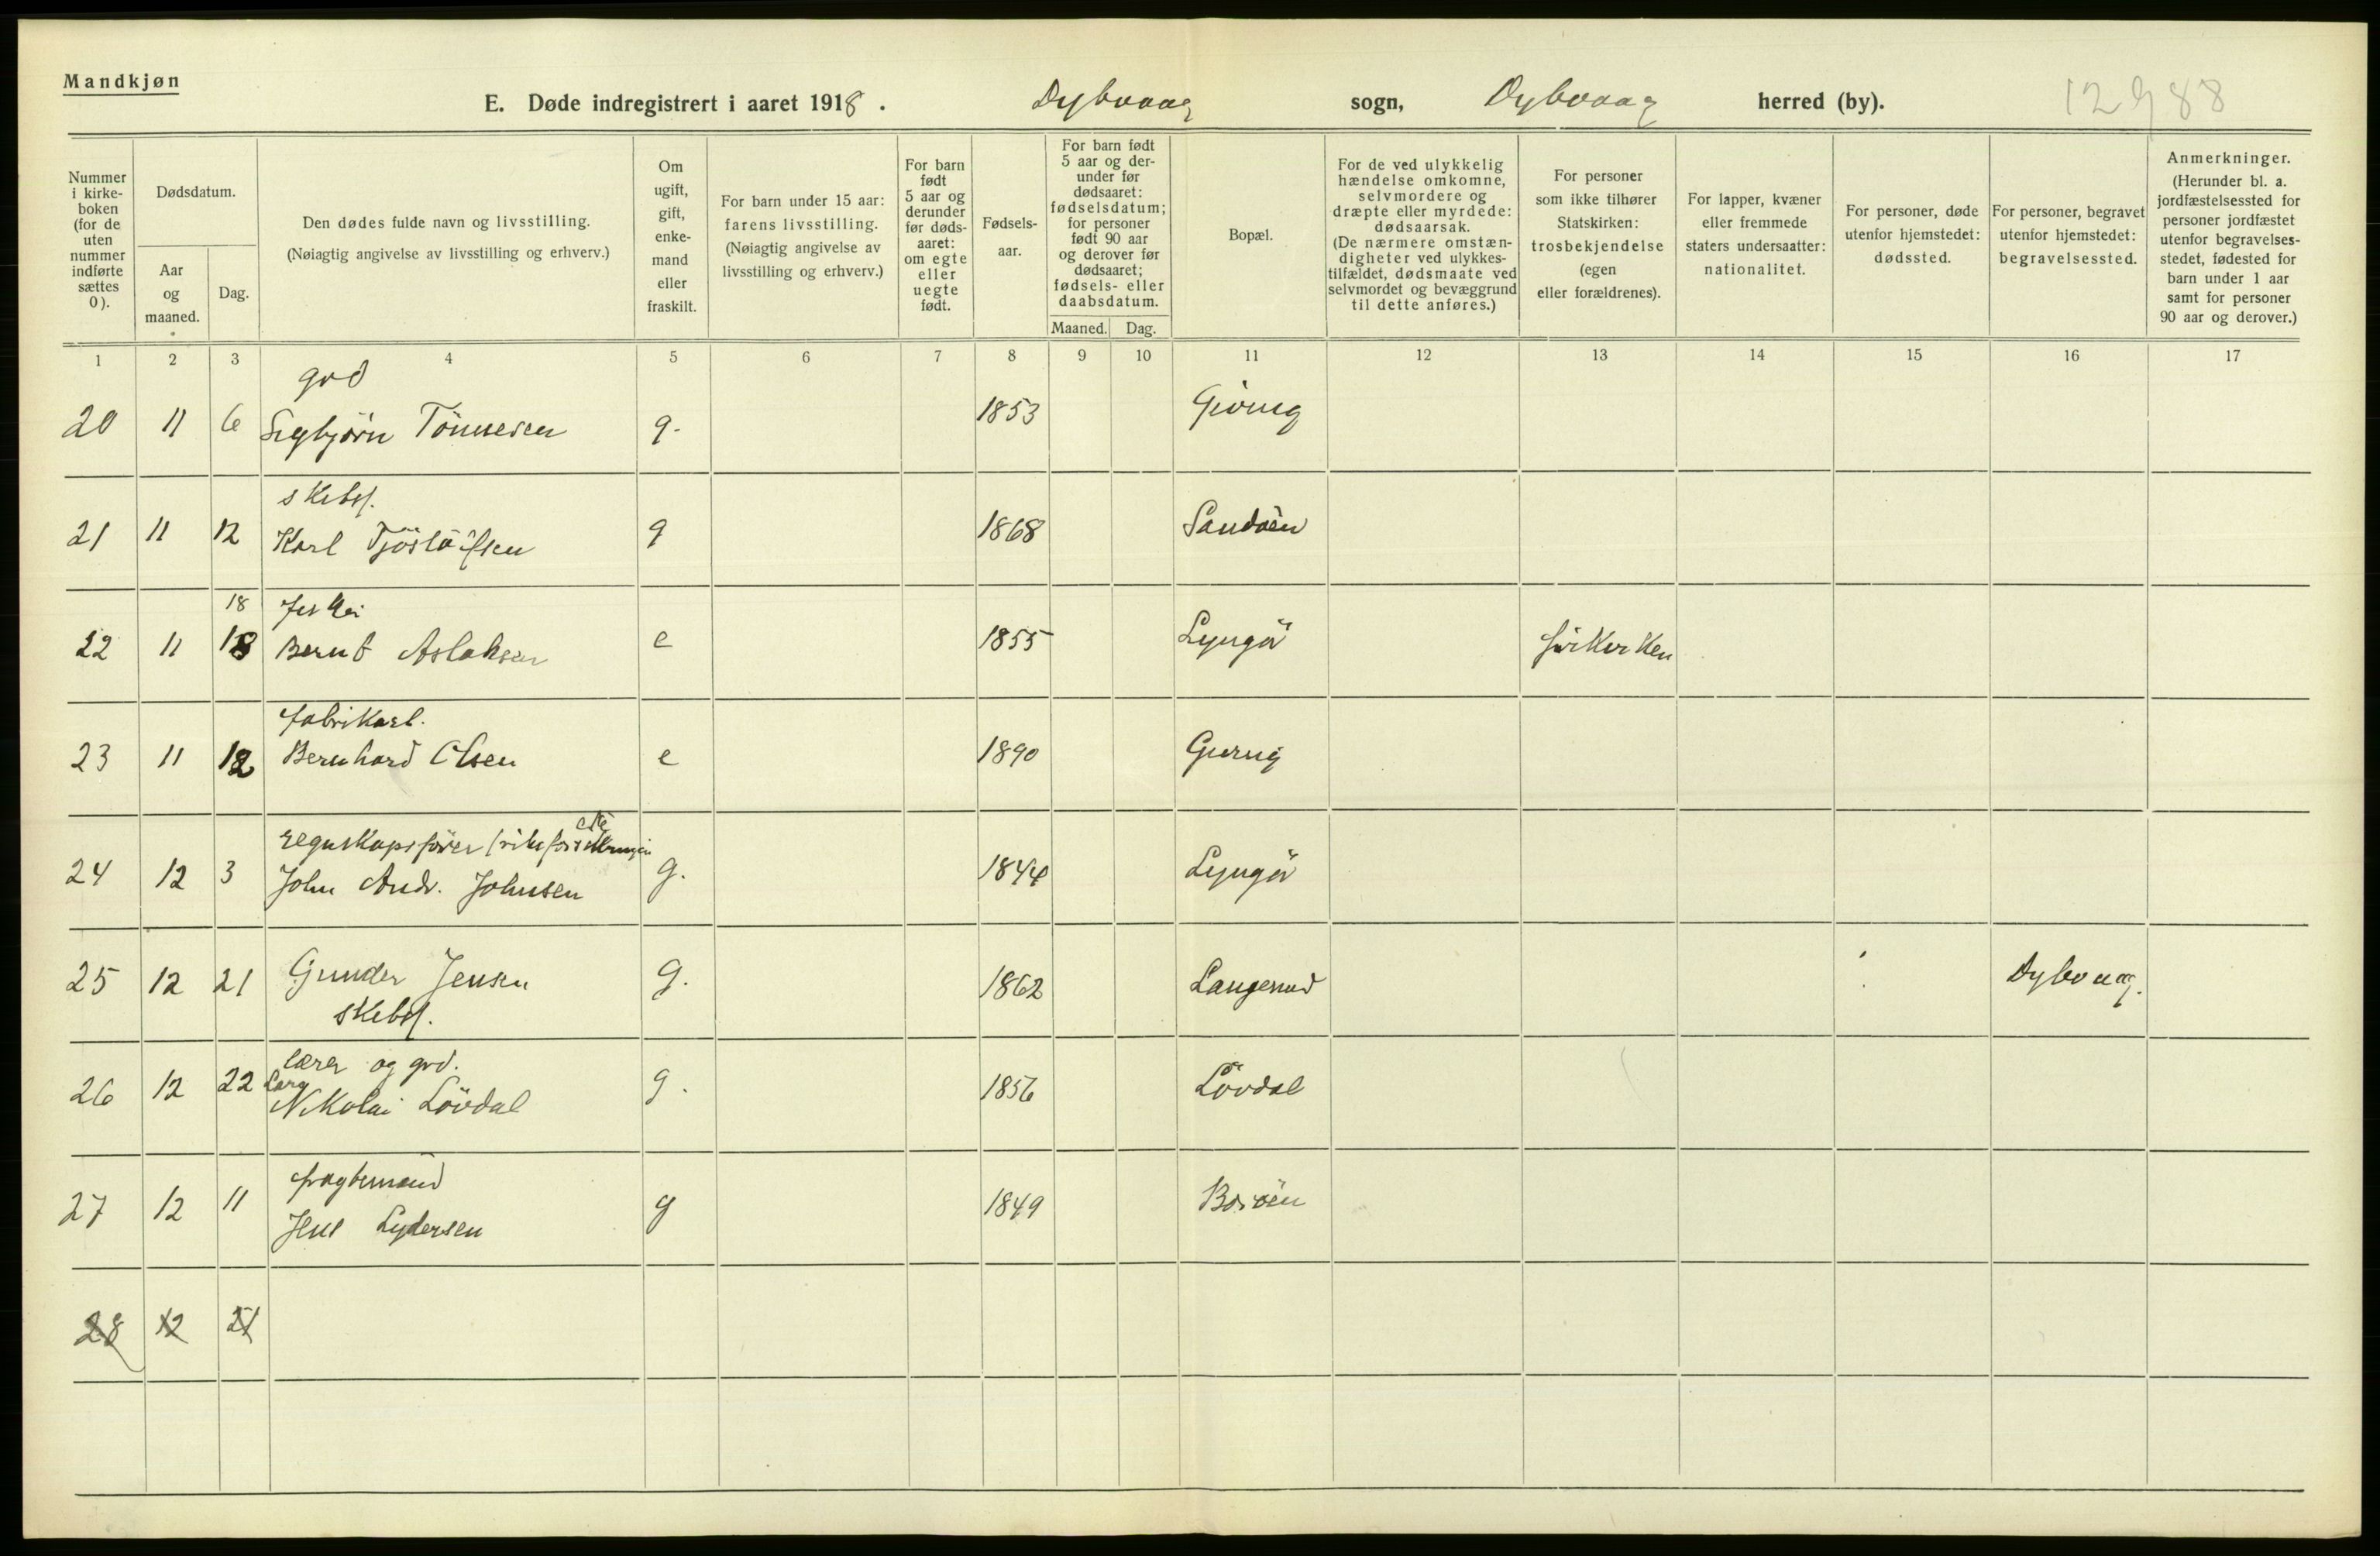 Mandkjøn
E. Døde indregistrert i aaret 1918. Dybvaag sogn, Dybvaag herred (by). 12988
Nummer i kirke-boken (for de uten nummer indførte sættes 0).
Dødsdatum.
Aar og maaned.
Dag.
Den dødes fulde navn og livsstilling.
(Nøiagtig angivelse av livsstilling og erhverv.)
Om ugift, gift, enke-mand eller fraskilt.
For barn under 15 aar: farens livsstilling.
(Nøiagtig angivelse av livsstilling og erhverv.)
For barn født 5 aar og derunder før døds-aaret: om egte eller uegte født.
Fødsels-aar.
For barn født 5 aar og der-under før dødsaaret: fødselsdatum; for personer født 90 aar og derover før dødsaaret; fødsels- eller daabsdatum.
Maaned. Dag.
Bopæl.
For de ved ulykkelig hændelse omkomne, selvmordere og dræpte eller myrdede: dødsaarsak.
(De nærmere omstæn-digheter ved ulykkes-tilfældet, dødsmaate ved selvmordet og bevæggrund til dette anføres.)
For personer som ikke tilhører Statskirken: trosbekjendelse (egen eller forældrenes).
For lapper, kvæner eller fremmede staters undersaatter: nationalitet.
For personer, døde utenfor hjemstedet: dødssted.
For personer, begravet utenfor hjemstedet: begravelsessted.
Anmerkninger.
(Herunder bl. a. jordfæstelsessted for personer jordfæstet utenfor begravelses-stedet, fødested for barn under 1 aar samt for personer 90 aar og derover.)
1 2 3 4 5 6 7 8 9 10 11 12 13 14 15 16 17
grd
20 11 6 Sigbjörn Tönnesen g. 1853 Gjöving
skibsf.
21 11 12 Karl Tjöstolfsen g 1868 Sandöen
18 fisker
22 11 18 Bernt Aslaksen e 1855 Lyngör frikirken
fabrikarb.
23 11 12 Bernhard Olsen e 1890
24 12 3 John Andr. Johnsen g. 1844 Lyngör
25 12 21 Gunder Jensen g. 1862 Dybvaag.
skibsf.
lærer og grd.
26 12 22 Lars Nikolai Lövdal g. 1856 Lövdal
fragtemand
27 12 11 Jens Lydersen g 1849 Boröen
28 12 21